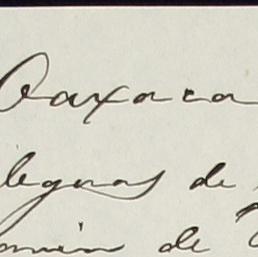 Oaxaca
leguas de
de